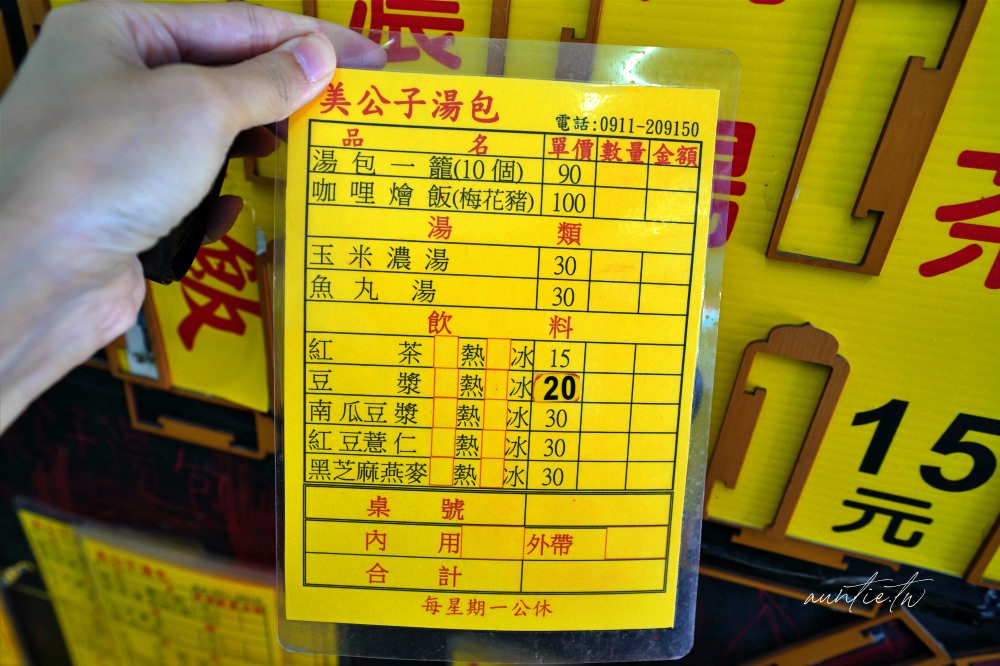 美公子湯包
電話:0911-209150
品 名 單價 數量 金額
湯包一籠(10個) 90
咖哩燴飯(梅花豬) 100
湯 類
玉米濃湯 30
魚丸湯 30
飲 料
紅茶 熱 冰 15
豆漿 熱 冰 20
南瓜豆漿 熱 冰 30
紅豆薏仁 熱 冰 30
黑芝麻燕麥 熱 冰 30
桌 號
內 用 外帶
合 計
每星期一公休
飯
湯
茶
15
元
auntie.tw